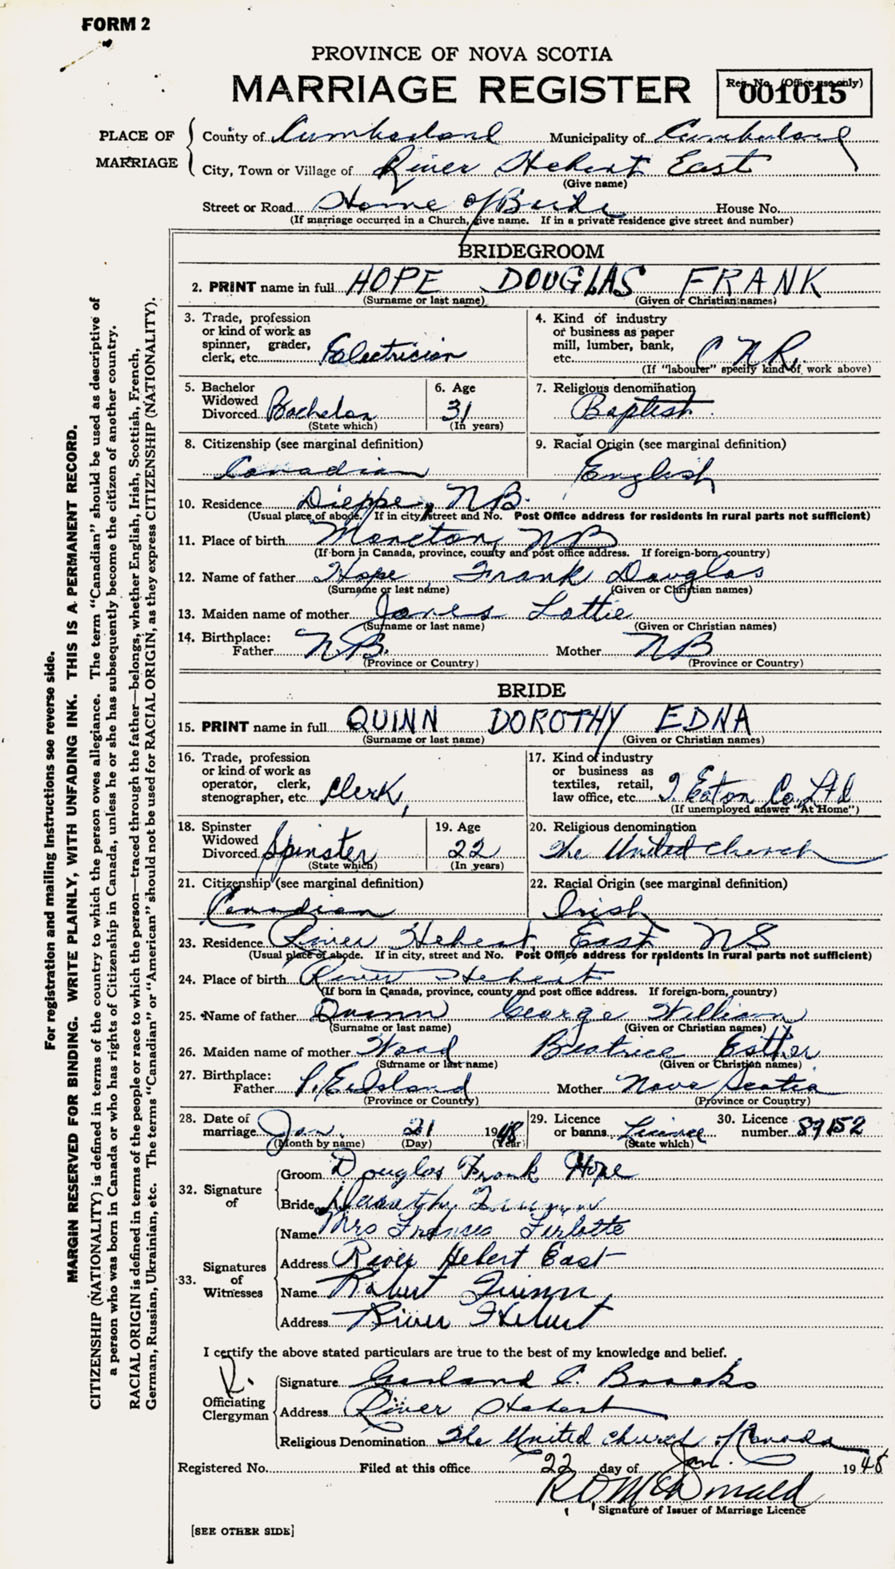 FORM 2
PROVINCE OF NOVA SCOTIA
MARRIAGE REGISTER
Reg. No. (Office use only)
001015
PLACE OF MARRIAGE
County of Cumberland Municipality of Cumberland
City, Town or Village of River Hebert East
(Give name)
Street or Road Home of Bride House No.
(If marriage occurred in a Church, give name. If in a private residence give street and number)
BRIDEGROOM
2. PRINT name in full HOPE DOUGLAS FRANK
(Surname or last name) (Given or Christian names)
3. Trade, profession or kind of work as spinner, grader, clerk, etc. Electrician
4. Kind of industry or business as paper mill, lumber, bank, etc. C N R.
(If "labourer" specify kind of work above)
5. Bachelor Widowed Divorced Bachelor
(State which)
6. Age 31
(In years)
7. Religious denomination
Baptist.
8. Citizenship (see marginal definition)
Canadian
9. Racial Origin (see marginal definition)
English
10. Residence Dieppe, N.B.
(Usual place of abode. If in city street and No. Post Office address for residents in rural parts not sufficient)
11. Place of birth Moncton, NB
(If born in Canada, province, county and post office address. If foreign-born, country)
12. Name of father Hope Frank Douglas
(Surname or last name) (Given or Christian names)
13. Maiden name of mother Jones Lottie
(Surname or last name) (Given or Christian names)
14. Birthplace:
Father N.B. Mother NB
(Province or Country) (Province or Country)
BRIDE
15. PRINT name in full QUINN DOROTHY EDNA
(Surname or last name) (Given or Christian names)
16. Trade, profession or kind of work as operator, clerk, stenographer, etc. Clerk,
17. Kind of industry or business as textiles, retail, law office, etc. T. Eaton Co. Ltd
(If unemployed answer "At Home")
18. Spinster Widowed Divorced Spinster
(State which)
19. Age 22
(In years)
20. Religious denomination
The United Church
21. Citizenship (see marginal definition)
Canadian
22. Racial Origin (see marginal definition)
Irish
23. Residence River Hebert East NS
(Usual place of abode. If in city, street and No. Post Office address for residents in rural parts not sufficient)
24. Place of birth River Hebert
(If born in Canada, province, county and post office address. If foreign-born, country)
25. Name of father Quinn George William
(Surname or last name) (Given or Christian names)
26. Maiden name of mother Wood Beatrice Esther
(Surname or last name) (Given or Christian names)
27. Birthplace:
Father P.E. Island Mother Nova Scotia
(Province or Country) (Province or Country)
28. Date of marriage Jan. 21 1948
(Month by name) (Day) (Year)
29. Licence or banns Licence
(State which)
30. Licence number 89152
32. Signature of
Groom Douglas Frank Hope
Bride Dorothy Quinn
33. Signatures of Witnesses
Name Mrs Frances Firlotte
Address River Hebert East
Name Robert Quinn
Address River Hebert
I certify the above stated particulars are true to the best of my knowledge and belief.
Officiating Clergyman
Signature Garland C. Brooks
Address River Hebert
Religious Denomination The United Church of Canada
Registered No. Filed at this office 22 day of Jan. 1948
R O McDonald
Signature of Issuer of Marriage Licence
[SEE OTHER SIDE]
For registration and mailing instructions see reverse side.
MARGIN RESERVED FOR BINDING. WRITE PLAINLY, WITH UNFADING INK. THIS IS A PERMANENT RECORD.
CITIZENSHIP (NATIONALITY) is defined in terms of the country to which the person owes allegiance. The term "Canadian" should be used as descriptive of
a person who was born in Canada or who has rights of Citizenship in Canada, unless he or she has subsequently become the citizen of another country.
RACIAL ORIGIN is defined in terms of the people or race to which the person—traced through the father—belongs, whether English, Irish, Scottish, French,
German, Russian, Ukrainian, etc. The terms "Canadian" or "American" should not be used for RACIAL ORIGIN, as they express CITIZENSHIP (NATIONALITY).